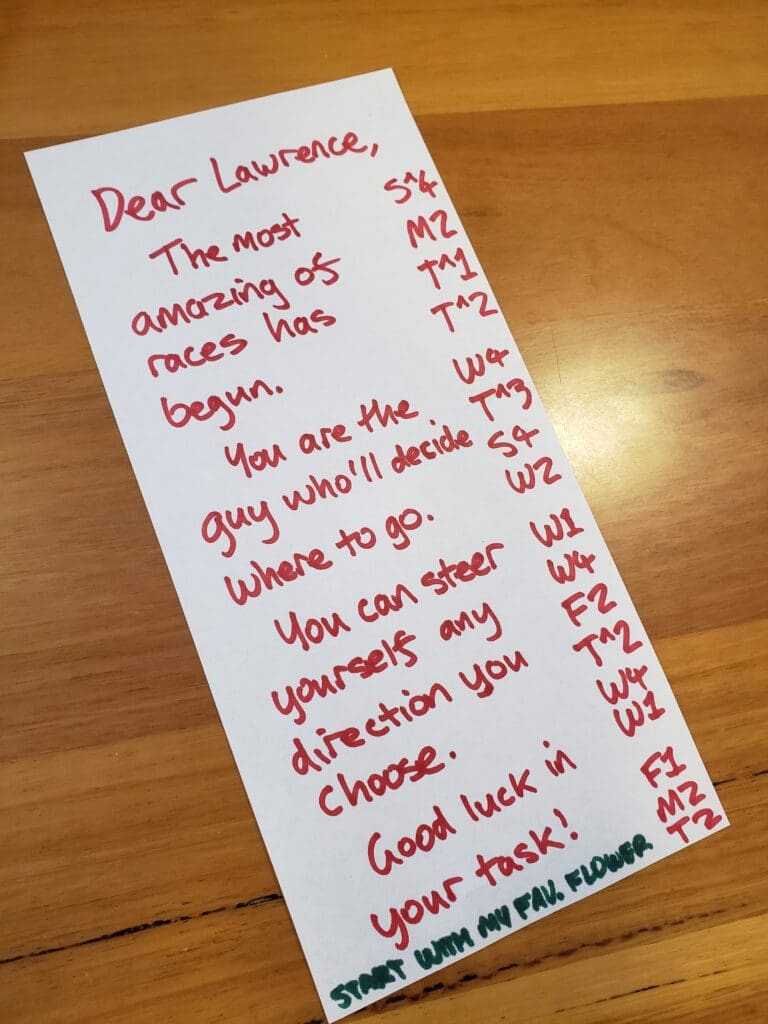 Dear Lawrence,
The most
amazing of
races has
begun.
You are the
guy who'll decide
where to go.
You can steer
yourself any
direction you
choose.
Good luck in
your task!
START WITH MY FAV. FLOWER
S^4
M2
T^1
T^2
W4
T^3
S4
W2
W1
W4
F2
T^2
W4
W1
F1
M2
T2